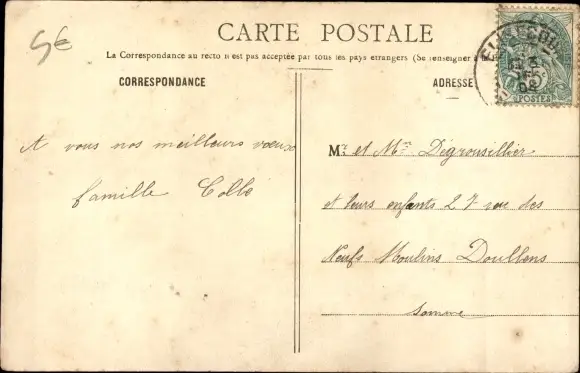 5€
CARTE POSTALE
La Correspondance au recto n'est pas acceptée par tous les pays etrangers (Se renseigner à la
CORRESPONDANCE
ADRESSE
POSTES
A vous nos meilleurs voeux
famille Collé
Mr et Mme Dégrousillier
et leurs enfants 27 rue des
Neufs Moulins Doullens
Somme